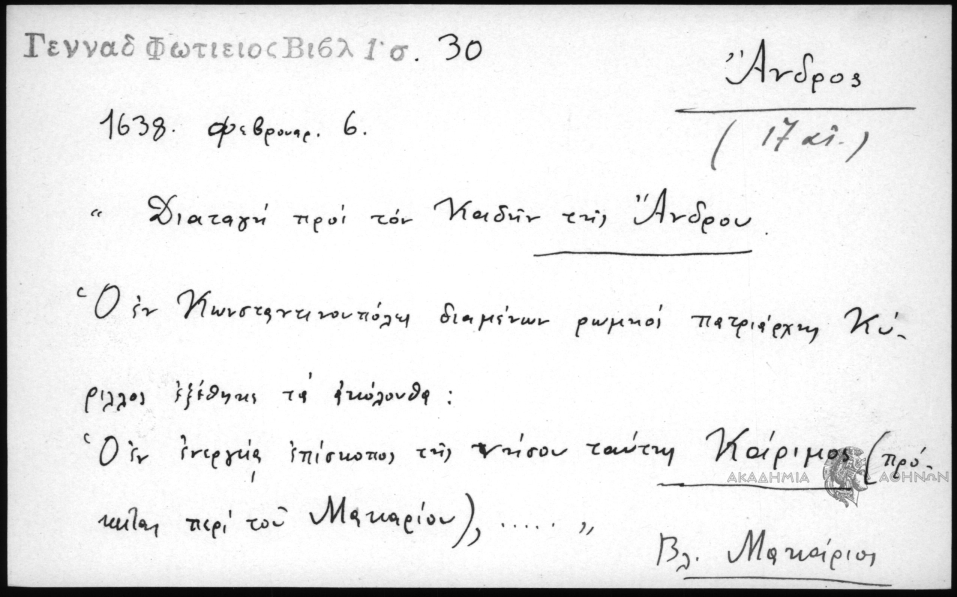 Γενναδ Φωτιειος Βιβλ 1· σ. 30
Ἄνδρος
(17 αἰ.)
1638. Φεβρουαρ. 6.
“ Διαταγή πρός τόν Καδῆν τῆς Ἄνδρου.
Ὁ ἐν Κωνσταντινουπόλει διαμένων ρωμηός πατριάρχης Κύ-
ριλλος ἐξέθηκε τά ἀκόλουθα :
Ὁ ἐν ἐνεργείᾳ ἐπίσκοπος τῆς νήσου ταύτης Καίριμος (πρό-
κειται περί τοῦ Μακαρίου), ..... „
Βλ. Μακάριος
ΑΚΑΔΗΜΙΑ ΑΘΗΝΩΝ